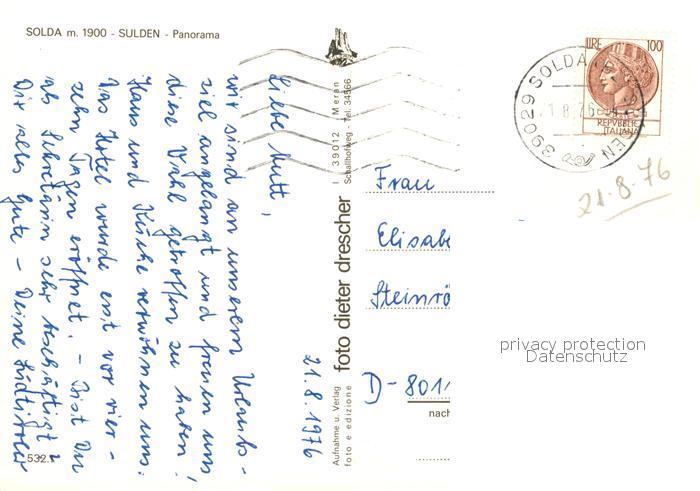 SOLDA m. 1900 - SULDEN - Panorama
21.8.1976
Liebe Mutti,
wir sind an unserem Urlaubs-
ziel angelangt und freuen uns
diese Wahl getroffen zu haben!
Haus und Küche verwöhnen uns.
Das Hotel wurde erst vor vier-
zehn Tagen eröffnet. - Bist Du
als Sekretärin sehr beschäftigt?
Dir alles Gute - Deine
532.
Aufnahme u. Verlag
foto e edizione
foto dieter drescher
I 39012 Meran
Schallhofweg - Tel. 34866
LIRE 100
REPVBBLICA
ITALIANA
39029 SOLDA
21.8.76
Frau
Elisabe
Steinrö
D-8011
nach
privacy protection
Datenschutz